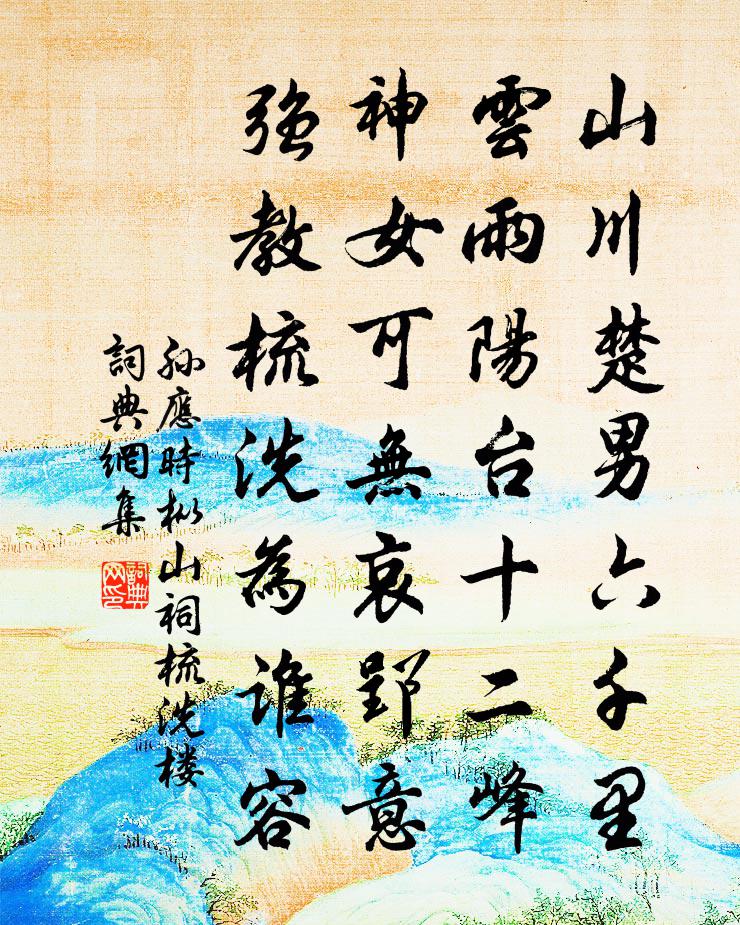 山川楚男六千里
雲雨陽台十二峰
神女可無哀郢意
强教梳洗為誰容
孫應時枞山祠梳洗楼
詞典網集
詞典網印